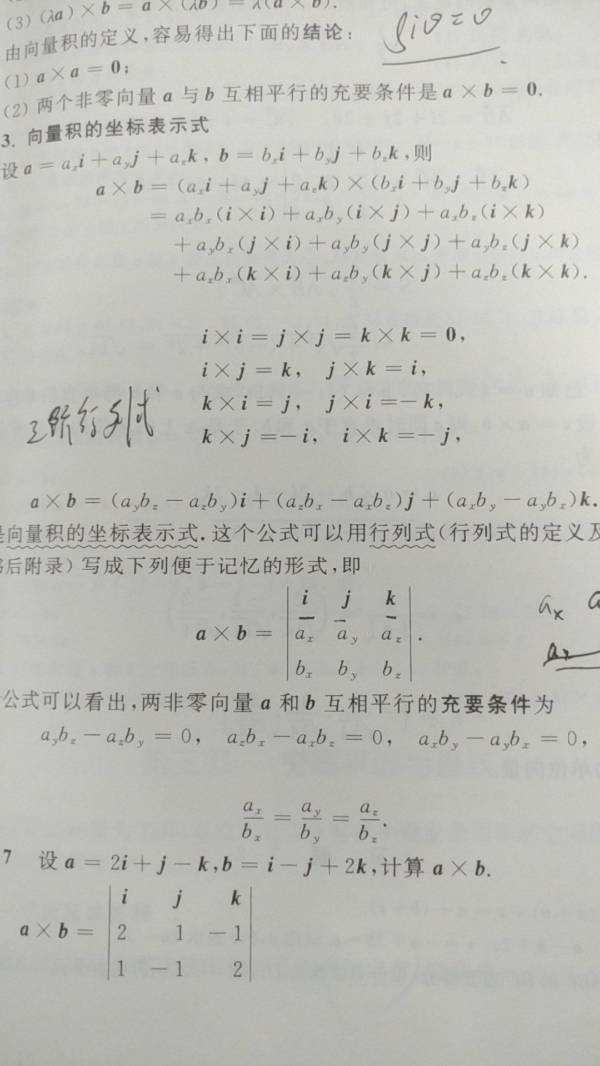 (3) (λa) × b = a × (λb) = λ(a × b).
sinθ=0
由向量积的定义,容易得出下面的结论:
(1) a × a = 0;
(2) 两个非零向量 a 与 b 互相平行的充要条件是 a × b = 0.
3. 向量积的坐标表示式
设 a = aₓi + a_y j + a_z k, b = bₓi + b_y j + b_z k,则
a × b = (aₓi + a_y j + a_z k) × (bₓi + b_y j + b_z k)
= aₓbₓ(i × i) + aₓb_y(i × j) + aₓb_z(i × k)
+ a_y bₓ(j × i) + a_y b_y(j × j) + a_y b_z(j × k)
+ a_z bₓ(k × i) + a_z b_y(k × j) + a_z b_z(k × k).
i × i = j × j = k × k = 0,
i × j = k, j × k = i,
三阶行列式
k × i = j, j × i = −k,
k × j = −i, i × k = −j,
a × b = (a_y b_z − a_z b_y)i + (a_z bₓ − aₓb_z)j + (aₓb_y − a_y bₓ)k.
是向量积的坐标表示式.这个公式可以用行列式(行列式的定义及
后附录) 写成下列便于记忆的形式,即
i j k
a × b = aₓ a_y a_z .
bₓ b_y b_z
aₓ
公式可以看出,两非零向量 a 和 b 互相平行的充要条件为
a_y b_z − a_z b_y = 0, a_z bₓ − aₓb_z = 0, aₓb_y − a_y bₓ = 0,
aₓ/bₓ = a_y/b_y = a_z/b_z.
7 设 a = 2i + j − k,b = i − j + 2k,计算 a × b.
i j k
a × b = 2 1 −1
1 −1 2